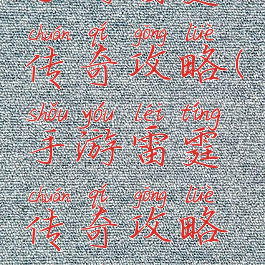 chuán qí gōng lüè
传奇攻略(
shǒu yóu léi tíng
手游雷霆
chuán qí gōng lüè
传奇攻略